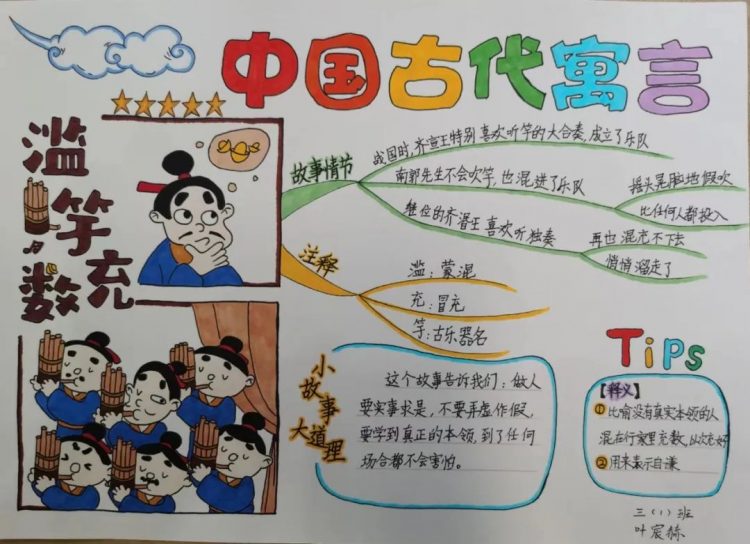 中国古代寓言
滥竽充数
故事情节
战国时,齐宣王特别喜欢听竽的大合奏,成立了乐队
南郭先生不会吹竽,也混进了乐队
摇头晃脑地假吹
比任何人都投入
继位的齐湣王喜欢听独奏
再也混充不下去
悄悄溜走了
注释
滥:蒙混
充:冒充
竽:古乐器名
小故事大道理
这个故事告诉我们:做人
要实事求是,不要弄虚作假,
要学到真正的本领,到了任何
场合都不会害怕。
Tips
【释义】
①比喻没有真实本领的人
混在行家里充数,以次充好
②用来表示自谦
三(1)班
叶宸赫